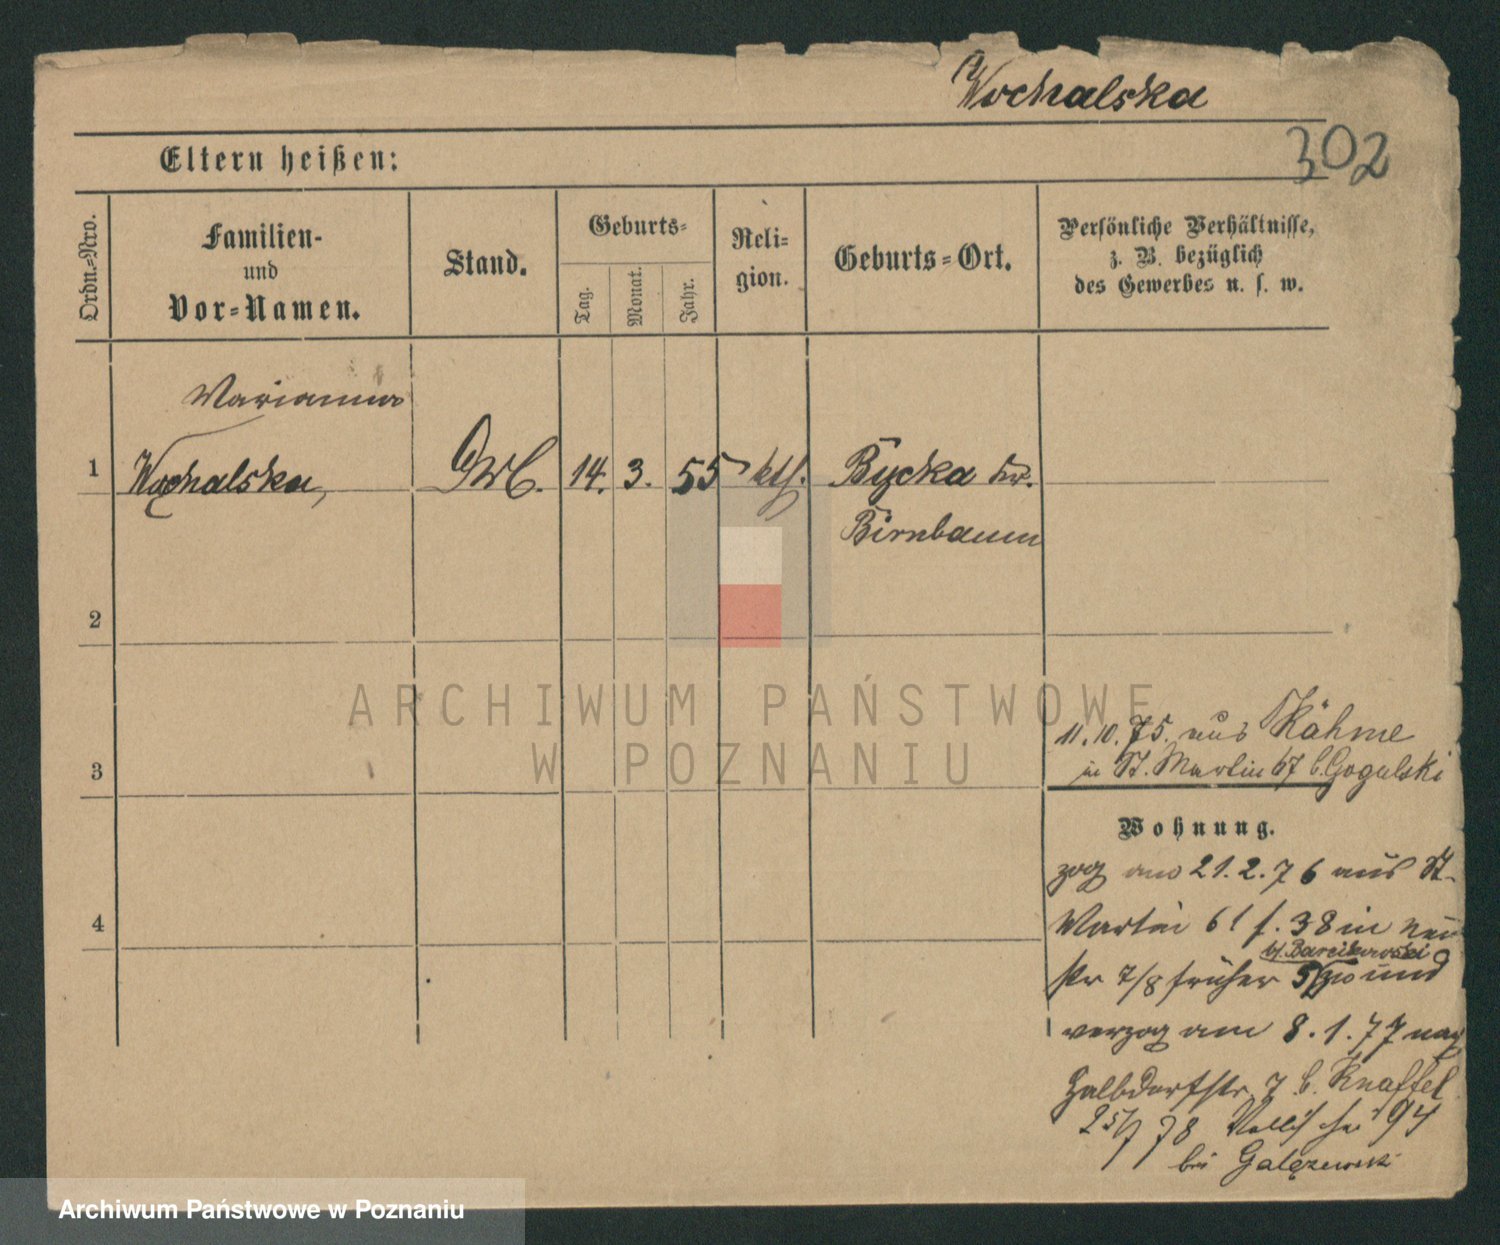 Wochalska
302
Eltern heißen:
Ordn.-Nro.
Familien-
und
Vor-Namen.
Stand.
Geburts-
Tag.
Monat.
Jahr.
Reli-
gion.
Geburts-Ort.
Persönliche Verhältnisse,
z. B. bezüglich
des Gewerbes u. s. w.
Marianna
1
Wochalska,
14. 3. 55
kth.
Bycka Kr.
Birnbaum
2
3
4
11. 10. 75. aus Kähme
in St. Martin 67 b. Gogulski
Wohnung.
zog am 21. 2. 76 aus St.
Martin 61 f. 38 in Neu
b/ Barcikowski
str 7/8 früher und
verzog am 8. 1. 77 nach
Halbdorfstr. 7 b. Knaffel
25/7 78 94
bei Galęzewski
ARCHIWUM PAŃSTWOWE
W POZNANIU
Archiwum Państwowe w Poznaniu